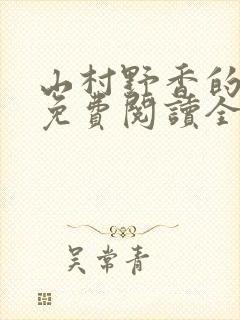 山村野香的
免費閱讀全
吴常青